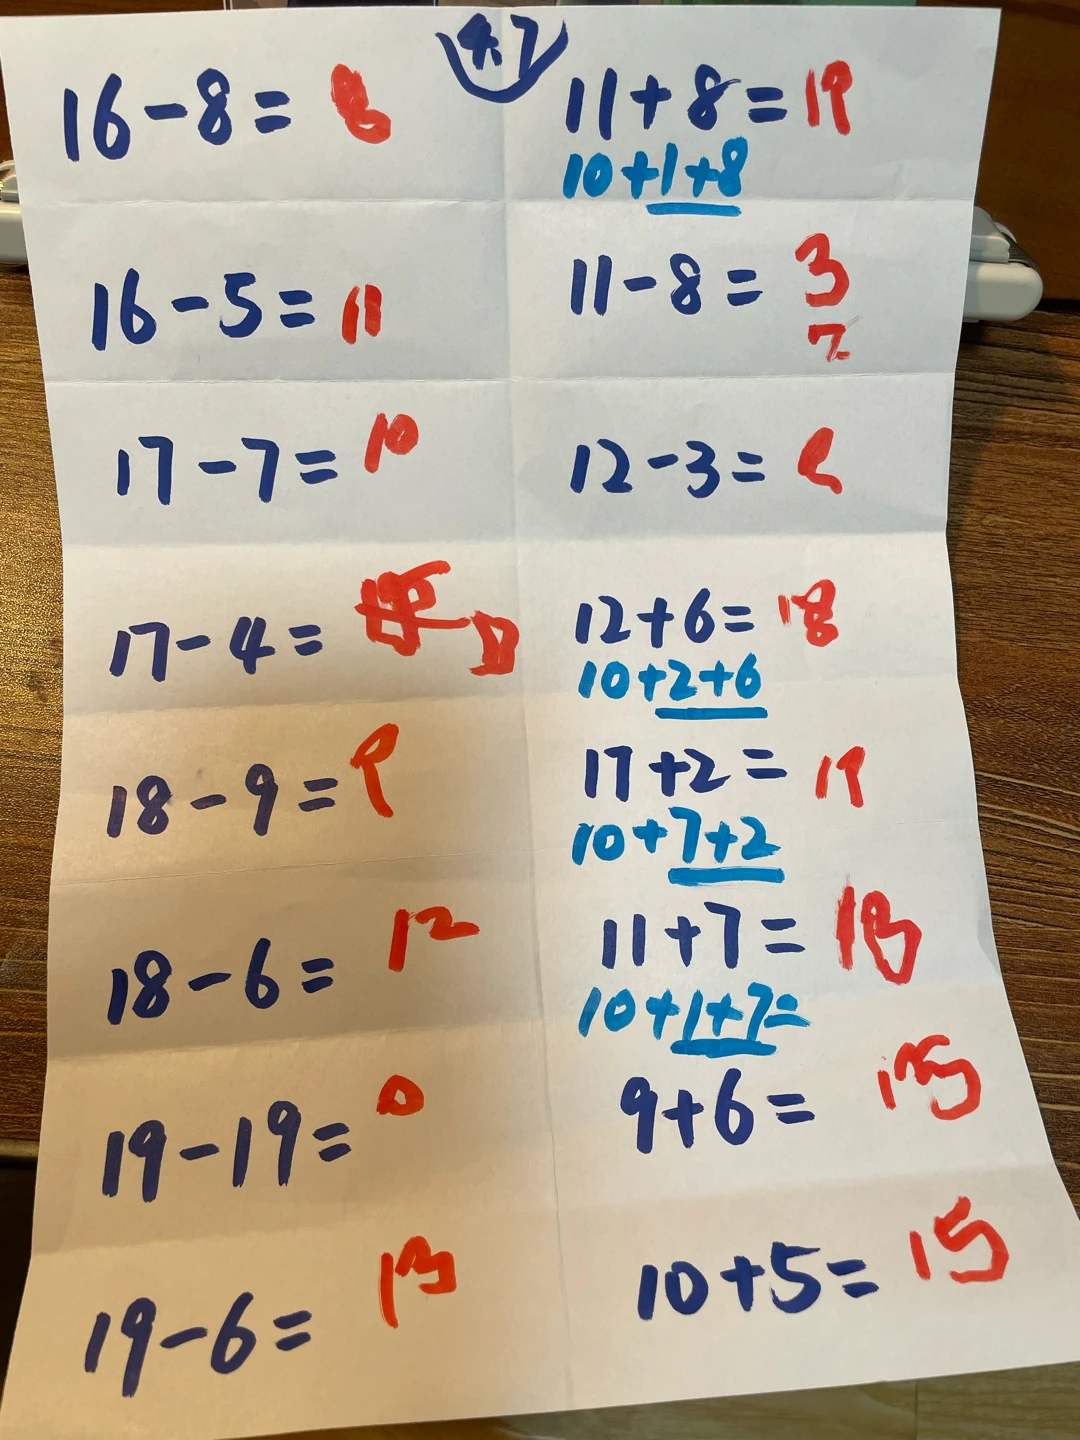 4.7
16-8= 8
16-5= 11
17-7= 10
17-4=
18-9= 9
18-6= 12
19-19= 0
19-6= 13
11+8=19
10+1+8
11-8= 3
12-3=
12+6= 18
10+2+6
17+2= 19
10+7+2
11+7= 18
10+1+7=
9+6= 15
10+5= 15